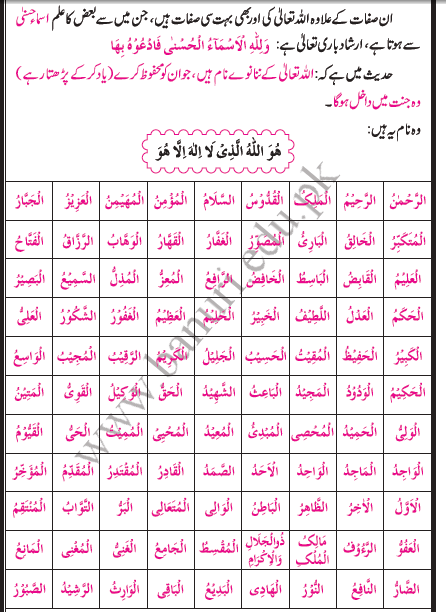 ان صفات کے علاوہ اللہ تعالیٰ کی اور بھی بہت سی صفات ہیں، جن میں سے بعض کا علم اسماءِ حسنیٰ
سے ہوتا ہے، ارشادِ باری تعالیٰ ہے: وَلِلّٰهِ الْاَسْمَآءُ الْحُسْنٰى فَادْعُوْهُ بِهَا
حدیث میں ہے کہ: اللہ تعالیٰ کے ننانوے نام ہیں، جو ان کو محفوظ کرے (یاد کر کے پڑھتا رہے)
وہ جنت میں داخل ہوگا۔
وہ نام یہ ہیں:
هُوَ اللّٰهُ الَّذِيْ لَا اِلٰهَ اِلَّا هُوَ
اَلرَّحْمٰنُ اَلرَّحِيْمُ اَلْمَلِكُ اَلْقُدُّوْسُ اَلسَّلَامُ اَلْمُؤْمِنُ اَلْمُهَيْمِنُ اَلْعَزِيْزُ اَلْجَبَّارُ
اَلْمُتَكَبِّرُ اَلْخَالِقُ اَلْبَارِئُ اَلْمُصَوِّرُ اَلْغَفَّارُ اَلْقَهَّارُ اَلْوَهَّابُ اَلرَّزَّاقُ اَلْفَتَّاحُ
اَلْعَلِيْمُ اَلْقَابِضُ اَلْبَاسِطُ اَلْخَافِضُ اَلرَّافِعُ اَلْمُعِزُّ اَلْمُذِلُّ اَلسَّمِيْعُ اَلْبَصِيْرُ
اَلْحَكَمُ اَلْعَدْلُ اَللَّطِيْفُ اَلْخَبِيْرُ اَلْحَلِيْمُ اَلْعَظِيْمُ اَلْغَفُوْرُ اَلشَّكُوْرُ اَلْعَلِيُّ
اَلْكَبِيْرُ اَلْحَفِيْظُ اَلْمُقِيْتُ اَلْحَسِيْبُ اَلْجَلِيْلُ اَلْكَرِيْمُ اَلرَّقِيْبُ اَلْمُجِيْبُ اَلْوَاسِعُ
اَلْحَكِيْمُ اَلْوَدُوْدُ اَلْمَجِيْدُ اَلْبَاعِثُ اَلشَّهِيْدُ اَلْحَقُّ اَلْوَكِيْلُ اَلْقَوِيُّ اَلْمَتِيْنُ
اَلْوَلِيُّ اَلْحَمِيْدُ اَلْمُحْصِيْ اَلْمُبْدِئُ اَلْمُعِيْدُ اَلْمُحْيِيْ اَلْمُمِيْتُ اَلْحَيُّ اَلْقَيُّوْمُ
اَلْوَاجِدُ اَلْمَاجِدُ اَلْوَاحِدُ اَلْاَحَدُ اَلصَّمَدُ اَلْقَادِرُ اَلْمُقْتَدِرُ اَلْمُقَدِّمُ اَلْمُؤَخِّرُ
اَلْاَوَّلُ اَلْاٰخِرُ اَلظَّاهِرُ اَلْبَاطِنُ اَلْوَالِيْ اَلْمُتَعَالِيْ اَلْبَرُّ اَلتَّوَّابُ اَلْمُنْتَقِمُ
اَلْعَفُوُّ اَلرَّءُوْفُ مَالِكُ الْمُلْكِ ذُوالْجَلَالِ وَالْاِكْرَامِ اَلْمُقْسِطُ اَلْجَامِعُ اَلْغَنِيُّ اَلْمُغْنِيْ اَلْمَانِعُ
اَلضَّارُّ اَلنَّافِعُ اَلنُّوْرُ اَلْهَادِيْ اَلْبَدِيْعُ اَلْبَاقِيْ اَلْوَارِثُ اَلرَّشِيْدُ اَلصَّبُوْرُ
www.banuri.edu.pk